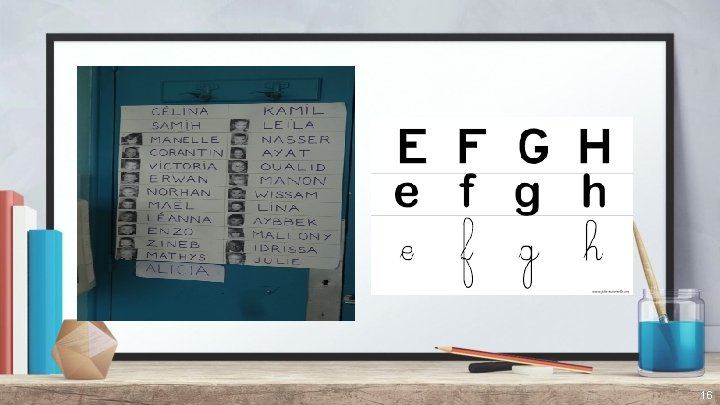 CÉLINA
SAMIH
MANELLE
CORANTIN
VICTORIA
ERWAN
NORHAN
MAËL
LÉANNA
ENZO
ZINEB
MATHYS
ALICIA
KAMIL
LEÏLA
NASSER
AYAT
OUALID
MANON
WISSAM
LINA
AYBBEK
MALLONY
IDRISSA
JULIE
E F G H
e f g h
e f g h
16